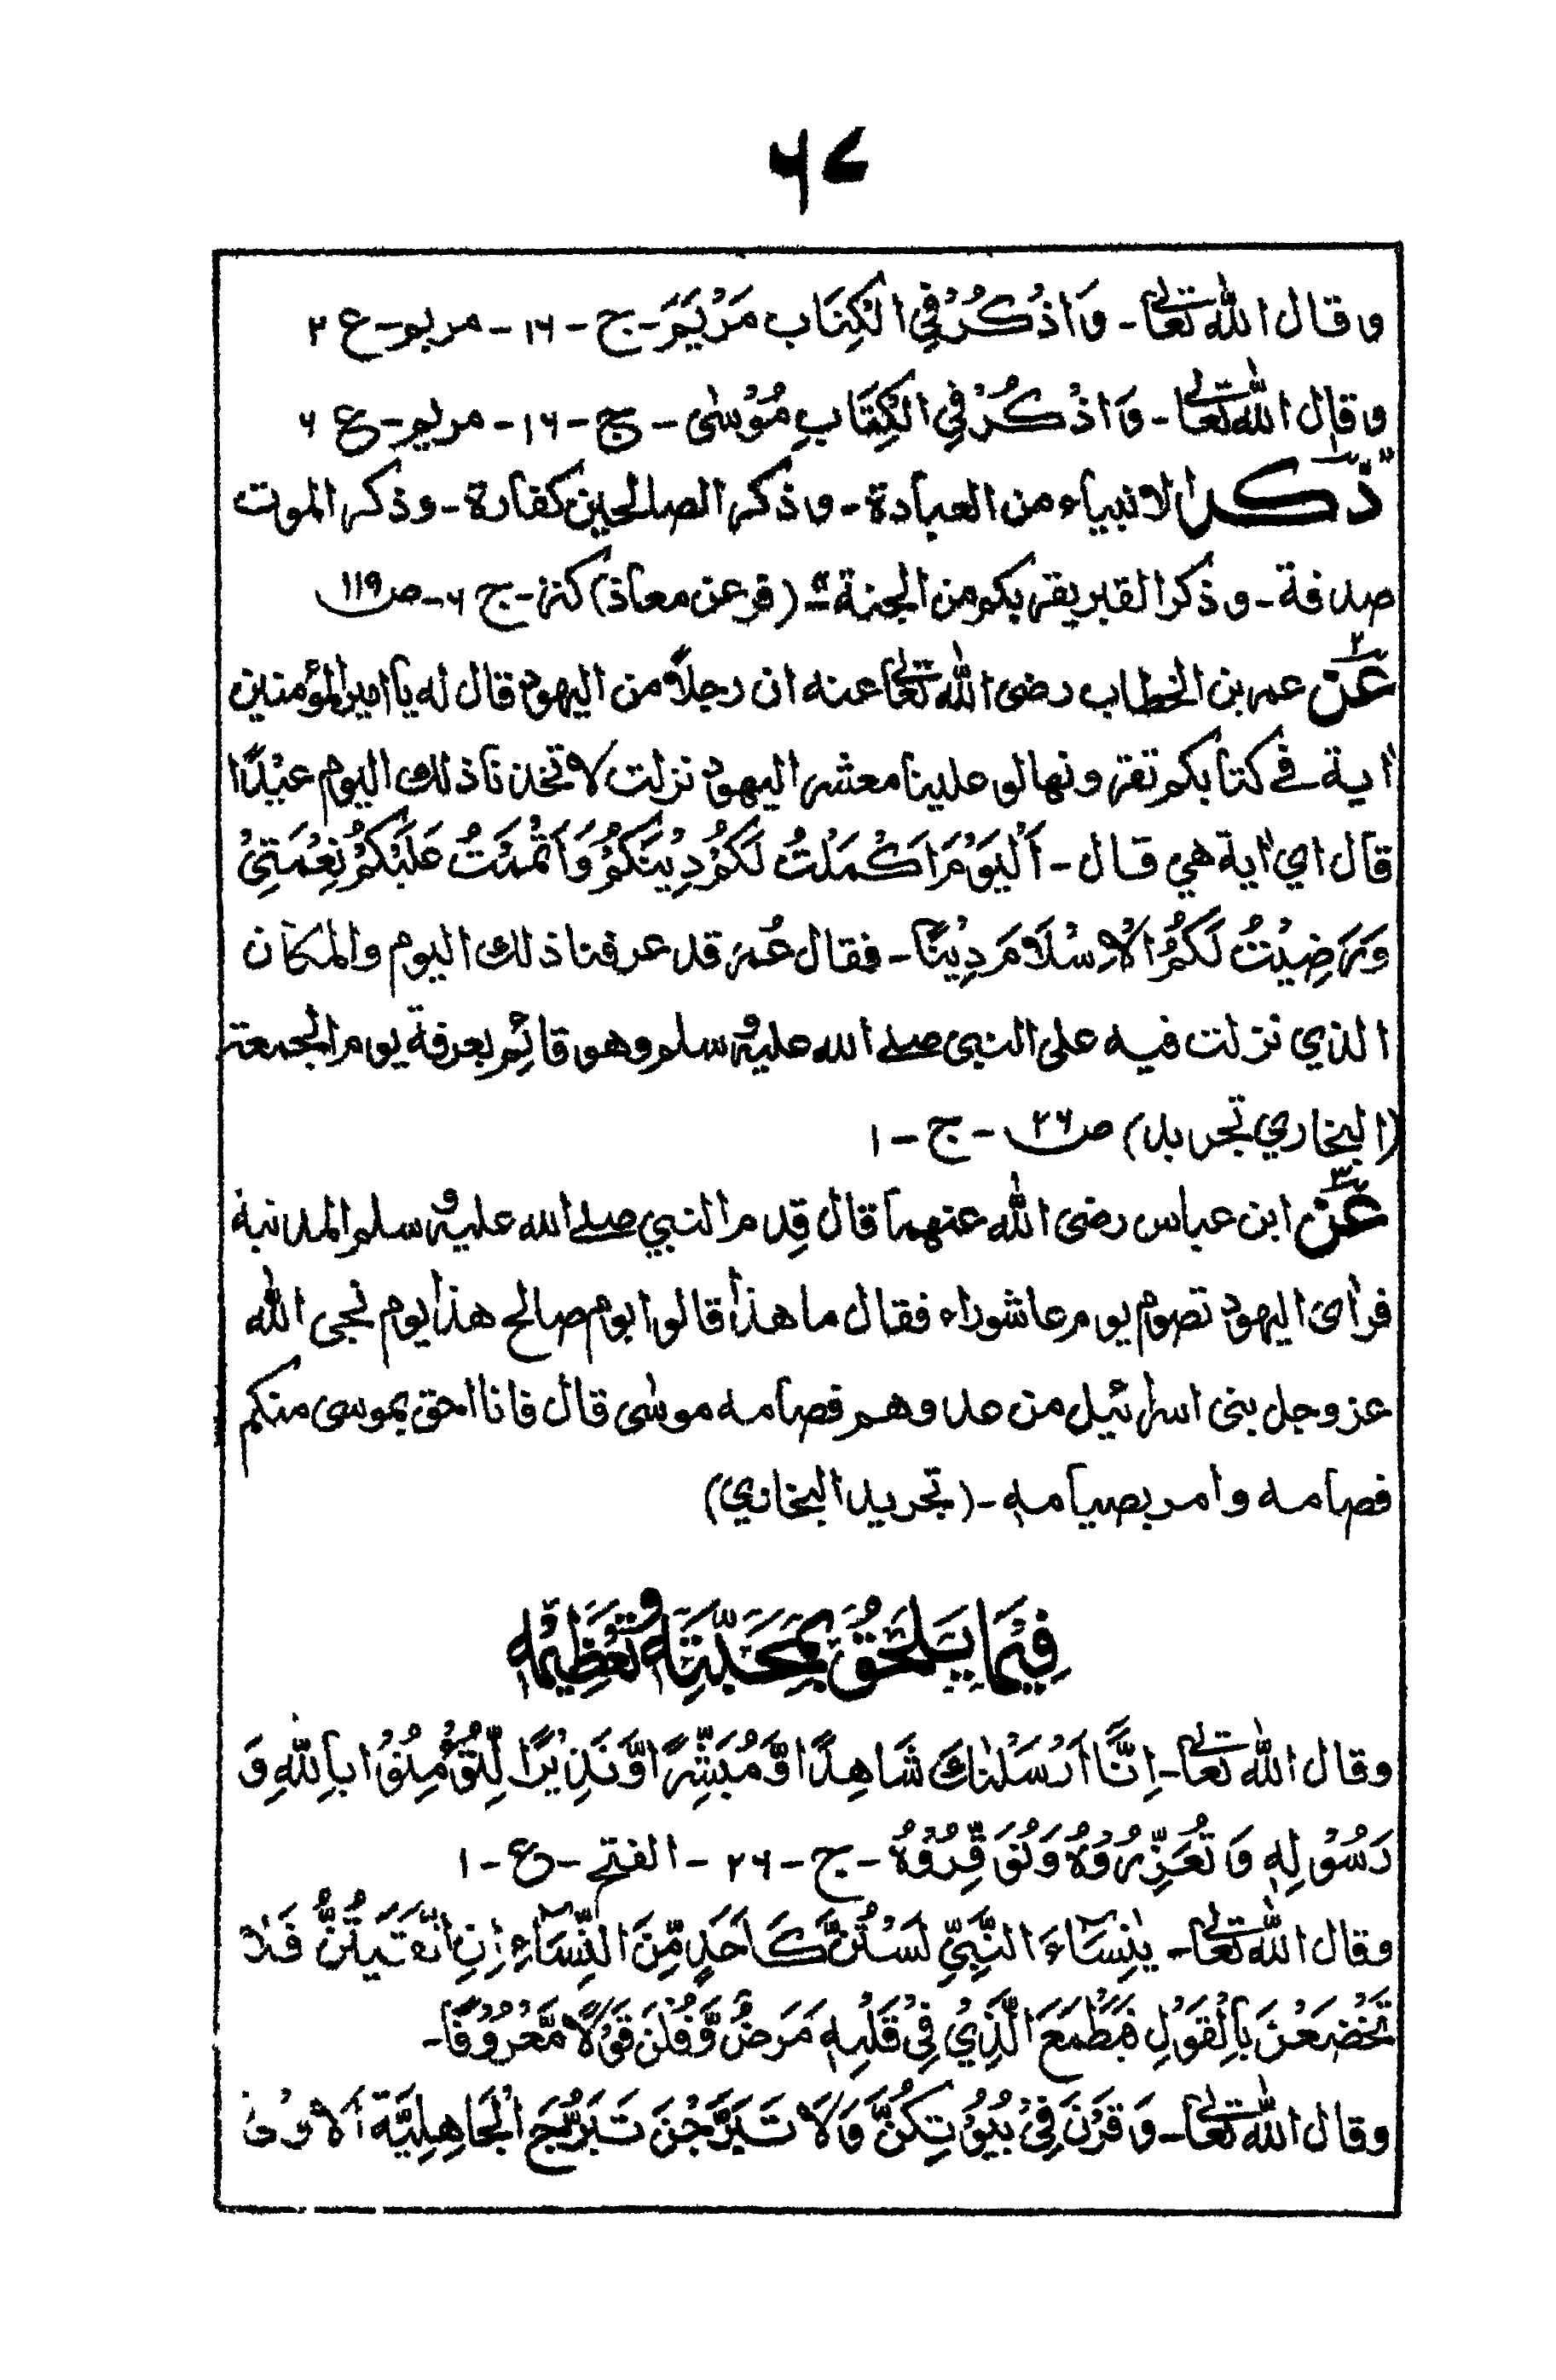 ۶۷
وقال الله تعالى - وَاذْكُرْ فِي الْكِتَابِ مَرْيَمَ - ج - ۱۶ - مريم - ع ۲
وقال الله تعالى - وَاذْكُرْ فِي الْكِتَابِ مُوْسٰى - ج - ۱۶ - مريم - ع ۶
ذكر الانبياء من العبادة - وذكر الصالحين كفارة - وذكر الموت
صدقة - وذكر القبر يقربكم من الجنة - (فر عن معاذ) كنز - ج ۶ - ص ۱۱۹
عن ۲ عمر بن الخطاب رضى الله تعالى عنه ان رجلاً من اليهود قال له يا امير المؤمنين
اٰية في كتابكم تقرءونها لو علينا معشر اليهود نزلت لاتخذنا ذلك اليوم عيْدًا
قال اي اٰية هي قال - اَلْيَوْمَ اَكْمَلْتُ لَكُمْ دِيْنَكُمْ وَاَتْمَمْتُ عَلَيْكُمْ نِعْمَتِيْ
وَرَضِيْتُ لَكُمُ الْاِسْلَامَ دِيْنًا - فقال عُمَر قد عرفنا ذلك اليوم والمكان
الذي نزلت فيه على النبي صلے الله عليه وسلم وهو قائم بعرفة يوم الجمعة
(البخاري تجريد) ص ۲۶ - ج - ۱
عن ۳ ابن عباس رضى الله عنهما قال قدم النبي صلے الله عليه وسلم المدينة
فراى اليهود تصوم يوم عاشوراء فقال ما هذا قالوا يوم صالح هذا يوم نجى الله
عز وجل بنى اسرائيل من عدوهم فصامه موسٰى قال فانا احق بموسى منكم
فصامه وامر بصيامه - (تجريد البخاري)
فِيْمَا يَلْحَقُ بِمَحَبَّتِهٖ وَتَعْظِيْمِهٖ
وقال الله تعالى - اِنَّا اَرْسَلْنٰكَ شَاهِدًا وَّمُبَشِّرًا وَّنَذِيْرًا لِّتُؤْمِنُوْا بِاللّٰهِ وَ
رَسُوْلِهٖ وَتُعَزِّرُوْهُ وَتُوَقِّرُوْهُ - ج - ۲۶ - الفتح - ع - ۱
وقال الله تعالى - يٰنِسَآءَ النَّبِيِّ لَسْتُنَّ كَاَحَدٍ مِّنَ النِّسَآءِ اِنِ اتَّقَيْتُنَّ فَلَا
تَخْضَعْنَ بِالْقَوْلِ فَيَطْمَعَ الَّذِيْ فِيْ قَلْبِهٖ مَرَضٌ وَّقُلْنَ قَوْلًا مَّعْرُوْفًا -
وقال الله تعالى - وَقَرْنَ فِيْ بُيُوْتِكُنَّ وَلَا تَبَرَّجْنَ تَبَرُّجَ الْجَاهِلِيَّةِ الْاُوْلٰى